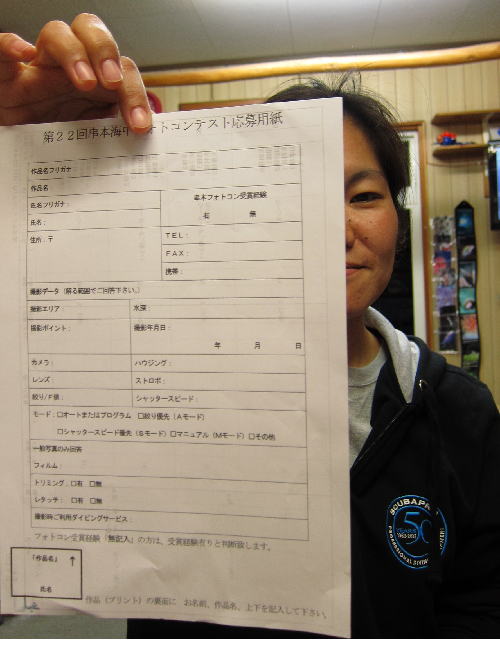 第２２回串本海中フォトコンテスト応募用紙
作品名フリガナ：
作品名：
氏名フリガナ：
氏名：
串本フォトコン受賞経験
有　無
住所：〒
ＴＥＬ：
ＦＡＸ：
携帯：
撮影データ（解る範囲でご回答下さい。）
撮影エリア：
水深：
撮影ポイント：
撮影年月日：
年　月　日
カメラ：
ハウジング：
レンズ：
ストロボ：
絞り/Ｆ値：
シャッタースピード：
モード：□オートまたはプログラム　□絞り優先（Ａモード）
□シャッタースピード優先（Ｓモード）□マニュアル（Ｍモード）□その他
一般写真のみ回答
フィルム：
トリミング：□有　□無
レタッチ：　□有　□無
撮影時ご利用ダイビングサービス：
フォトコン受賞経験（無記入）の方は、受賞経験有りと判断致します。
「作品名」↑
氏名
作品（プリント）の裏面に　お名前、作品名、上下を記入して下さい。
SCUBAPRO
50
YEARS